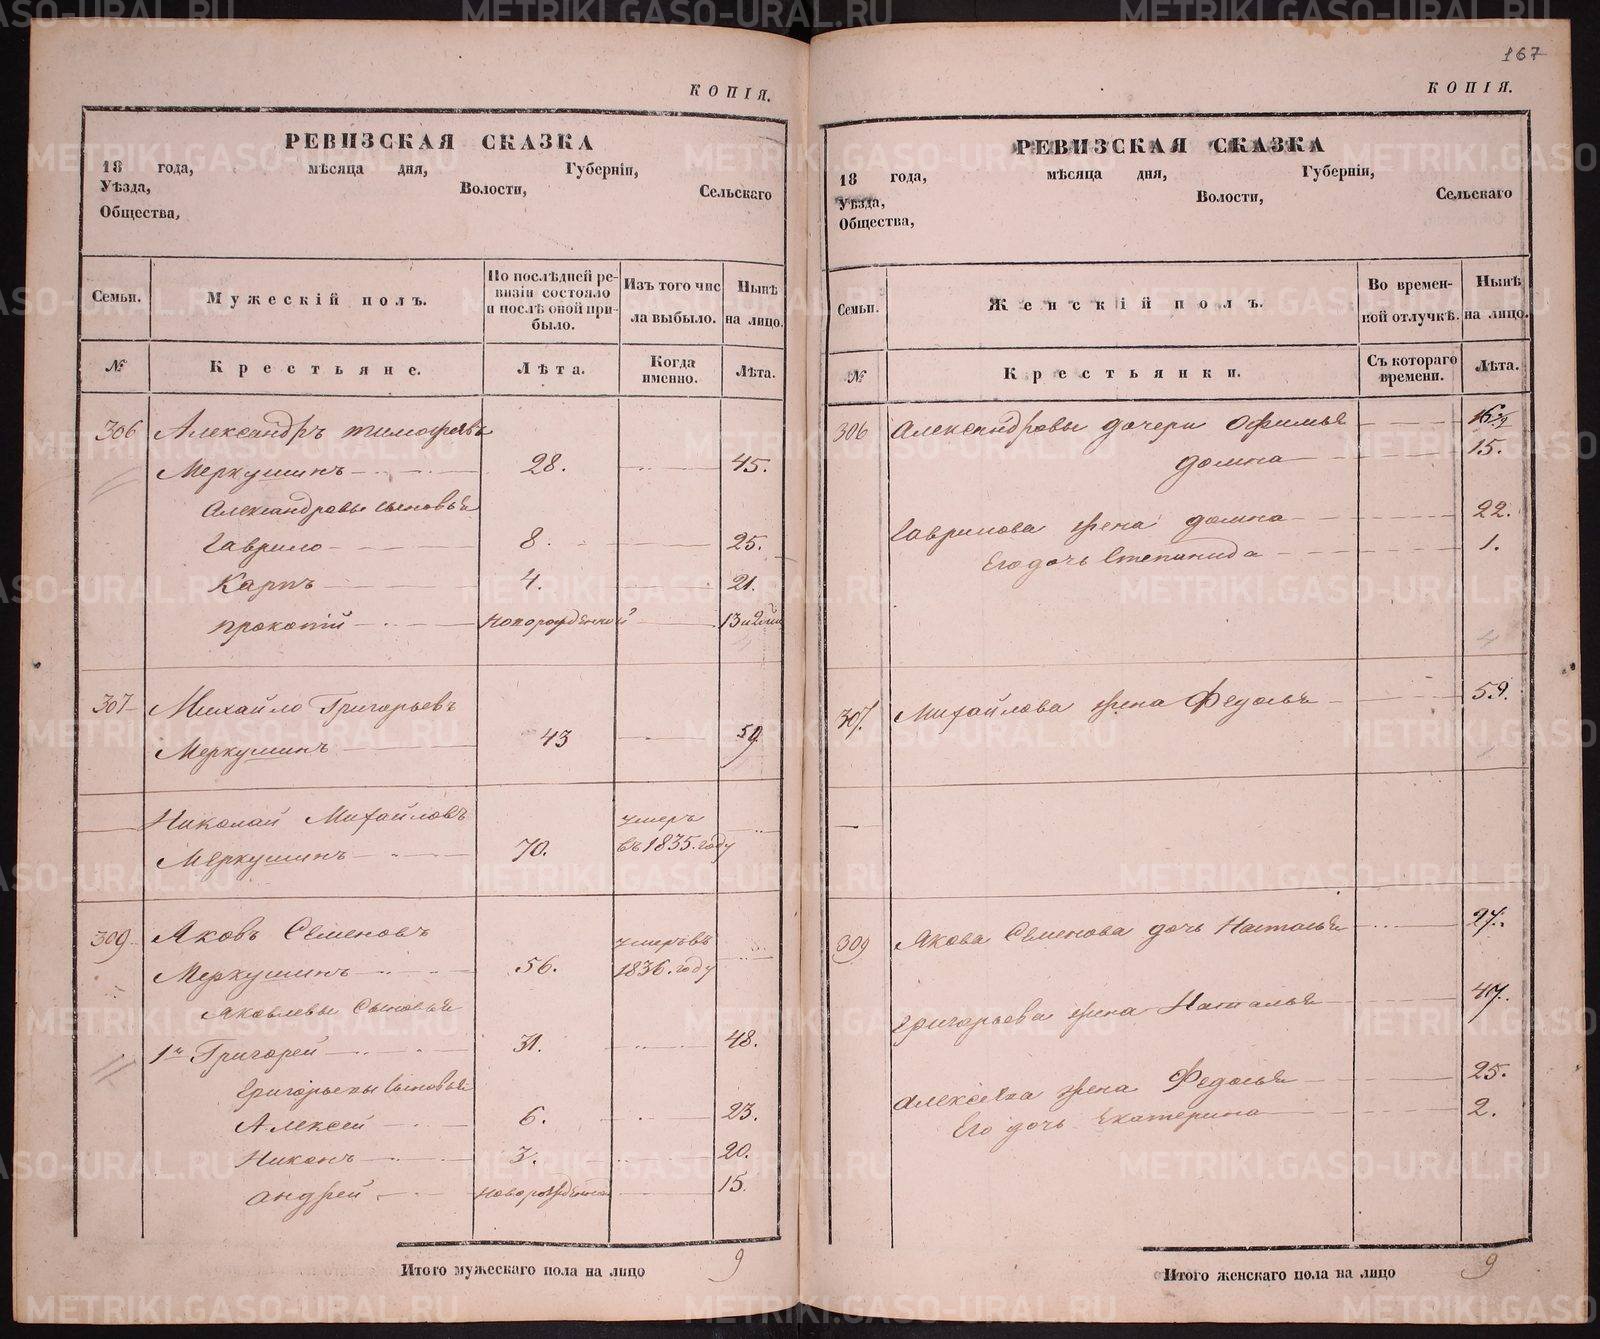 КОПІЯ.
РЕВИЗСКАЯ СКАЗКА
18 года, мѣсяца дня, Губерніи,
Уѣзда, Волости, Сельскаго
Общества,
Семьи. Мужескій полъ. По послѣдней ревизіи состояло и послѣ оной прибыло. Изъ того числа выбыло. Нынѣ на лицо.
№ Крестьяне. Лѣта. Когда именно. Лѣта.
306 Александръ Тимофеевъ
Меркушинъ 28. 45.
Александровы сыновья
Гаврило 8. 25.
Карпъ 4. 21.
Прокопій новорожденной 13
307 Михайло Григорьевъ
Меркушинъ 43 59
Николай Михайловъ умеръ
Меркушинъ 70. въ 1835. году
309 Яковъ Семеновъ умеръ въ
Меркушинъ 56. 1836. году
Яковлевы Сыновья
1й Григорей 31. 48.
Григорьевы сыновья
Алексей 6. 23.
Никонъ 3. 20.
Андрей новорожденной 15.
Итого мужескаго пола на лицо 9
167
КОПІЯ.
РЕВИЗСКАЯ СКАЗКА
18 года, мѣсяца дня, Губерніи,
Уѣзда, Волости, Сельскаго
Общества,
Семьи. Женскій полъ. Во временной отлучкѣ. Нынѣ на лицо.
№ Крестьянки. Съ котораго времени. Лѣта.
306 Александровы дочери Офимья 16
Домна 15.
Гаврилова жена Домна 22.
Его дочь Степанида 1.
4
307. Михайлова жена Федосья 59.
1
309 Якова Семенова дочь Наталья 27.
Григорьева жена Наталья 47.
Алексеева жена Федосья 25.
Его дочь Екатерина 2.
Итого женскаго пола на лицо 9
METRIKI.GASO-URAL.RU